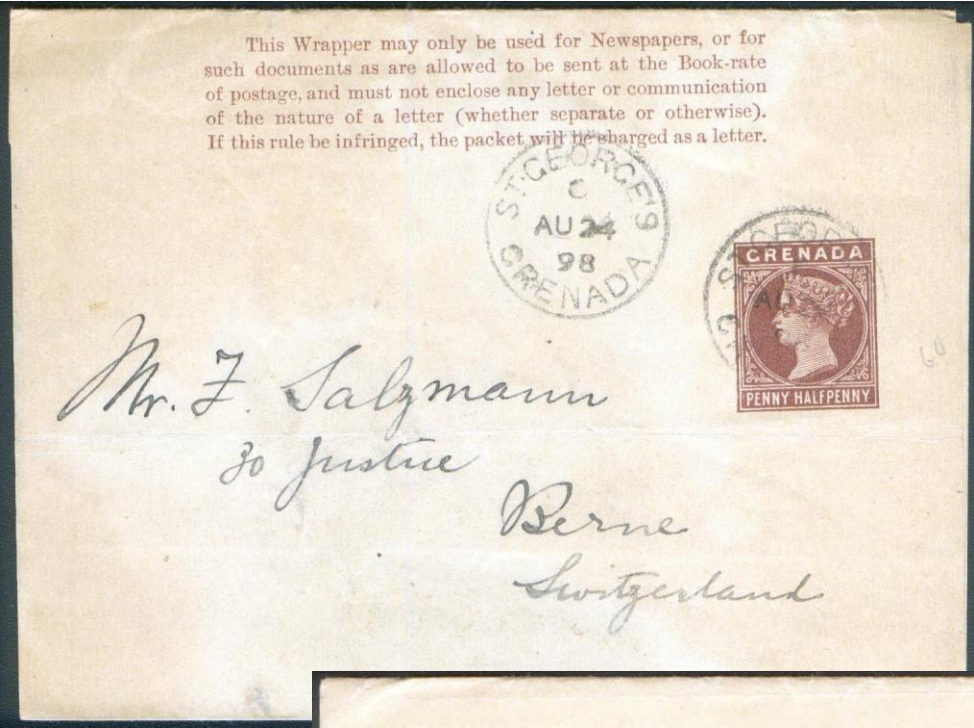 This Wrapper may only be used for Newspapers, or for
such documents as are allowed to be sent at the Book-rate
of postage, and must not enclose any letter or communication
of the nature of a letter (whether separate or otherwise).
If this rule be infringed, the packet will be charged as a letter.
ST. GEORGE'S
C
AU 24
98
GRENADA
GRENADA
PENNY HALFPENNY
60
Mr. F. Salzmann
30 Justice
Berne
Switzerland